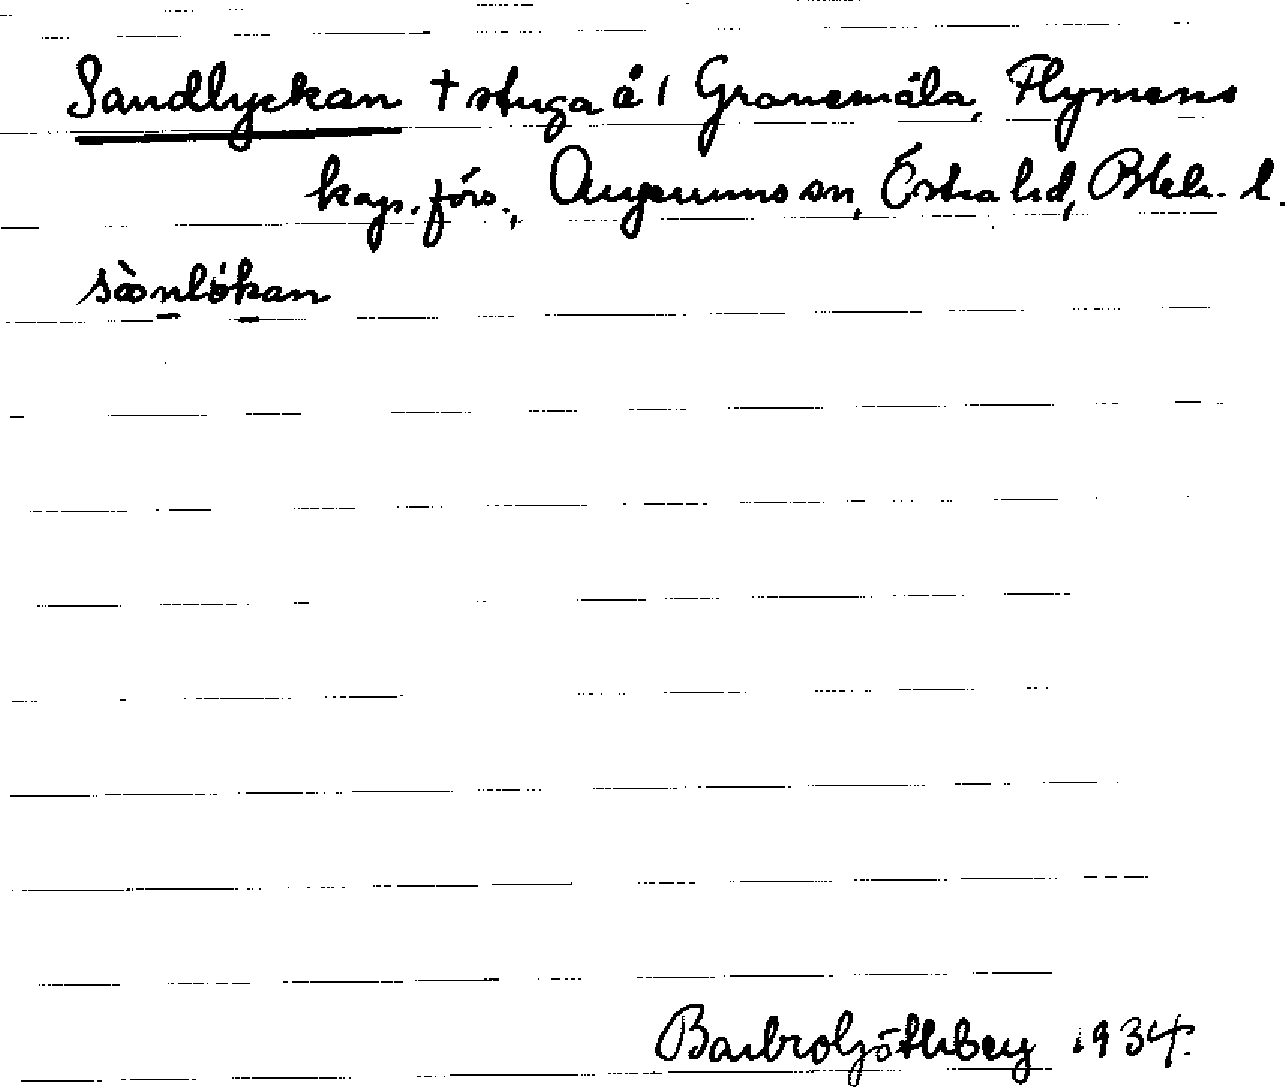 Sandlyckan † stuga å 1 Granemåla, Flymens
kap. förs., Augerums sn, Östra hd, Blek. l.
sànlókan
Barbro Göthberg 1934.